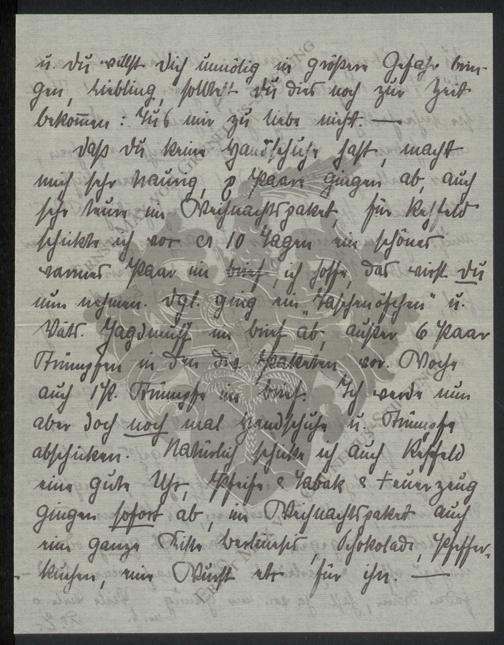 u. Du willst Dich unnötig in größere Gefahr brin-
gen, Liebling, solltest Du dies noch zur Zeit
bekommen: Tu's mir zu liebe nicht. —
Daß Du keine Handschuhe hast, macht
mich sehr traurig, 2 Paar gingen ab, auch
sehr teure im Weihnachtspaket, für Rehfeld
schickte ich vor ca 10 Tagen ein schönes
warmes Paar im brief, ich hoffe, das wirst Du
nun nehmen. Dgl. ging ein "Taschenöfchen" u.
Vaters Jagdmuff im brief ab, außer 6 Paar
Strümpfen in den Paketen vor. Woche
auch 1 P. Strümpfe im brief. Ich werde nun
aber doch noch mal Handschuhe u. Strümpfe
abschicken. Natürlich schicke ich auch Rehfeld
eine gute Uhr, Pfeife & Tabak & Feuerzeug
gingen sofort ab, im Weihnachtspaket auch
eine ganze Kiste Schokolade, Pfeffer-
kuchen, eine Wurst etc. für ihn. —